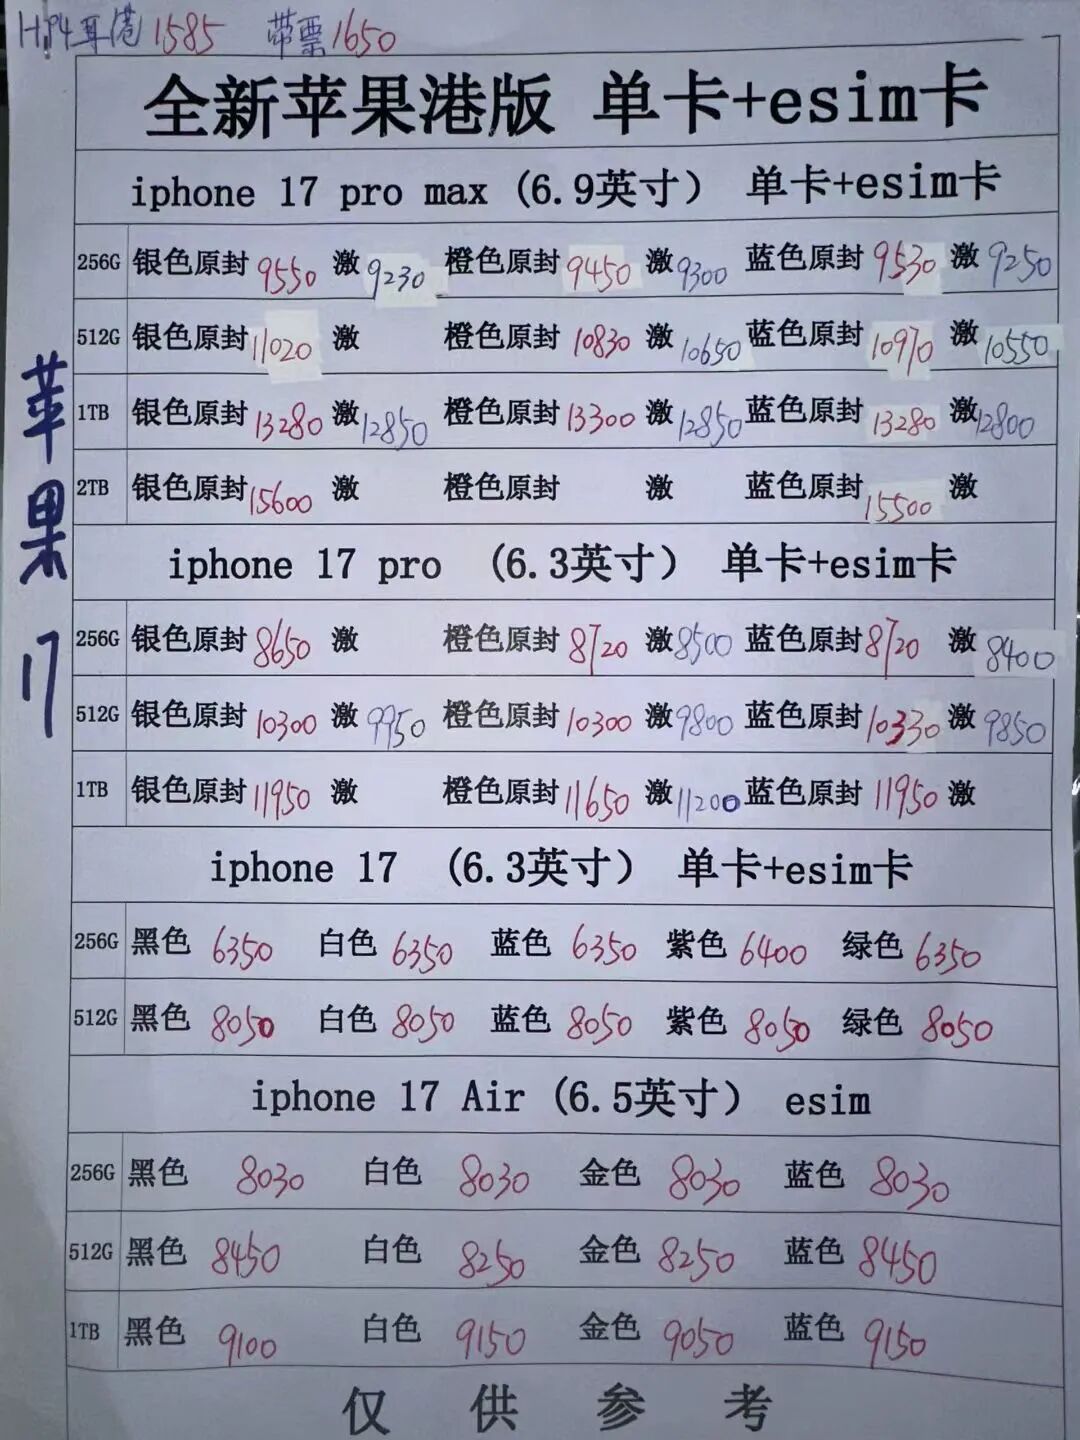 H.P4耳港1585 带票1650
全新苹果港版 单卡+esim卡
iphone 17 pro max (6.9英寸) 单卡+esim卡
256G 银色原封 9550 激 9230 橙色原封 9450 激 9300 蓝色原封 9530 激 9250
512G 银色原封 11020 激 橙色原封 10830 激 10650 蓝色原封 10970 激 10550
1TB 银色原封 13280 激 12850 橙色原封 13300 激 12850 蓝色原封 13280 激 12800
2TB 银色原封 15600 激 橙色原封 激 蓝色原封 15500 激
苹果17
iphone 17 pro (6.3英寸) 单卡+esim卡
256G 银色原封 8650 激 橙色原封 8720 激 8500 蓝色原封 8720 激 8400
512G 银色原封 10300 激 9950 橙色原封 10300 激 9800 蓝色原封 10330 激 9850
1TB 银色原封 11950 激 橙色原封 11650 激 11200 蓝色原封 11950 激
iphone 17 (6.3英寸) 单卡+esim卡
256G 黑色 6350 白色 6350 蓝色 6350 紫色 6400 绿色 6350
512G 黑色 8050 白色 8050 蓝色 8050 紫色 8050 绿色 8050
iphone 17 Air (6.5英寸) esim
256G 黑色 8030 白色 8030 金色 8030 蓝色 8030
512G 黑色 8450 白色 8250 金色 8250 蓝色 8450
1TB 黑色 9100 白色 9150 金色 9050 蓝色 9150
仅供参考